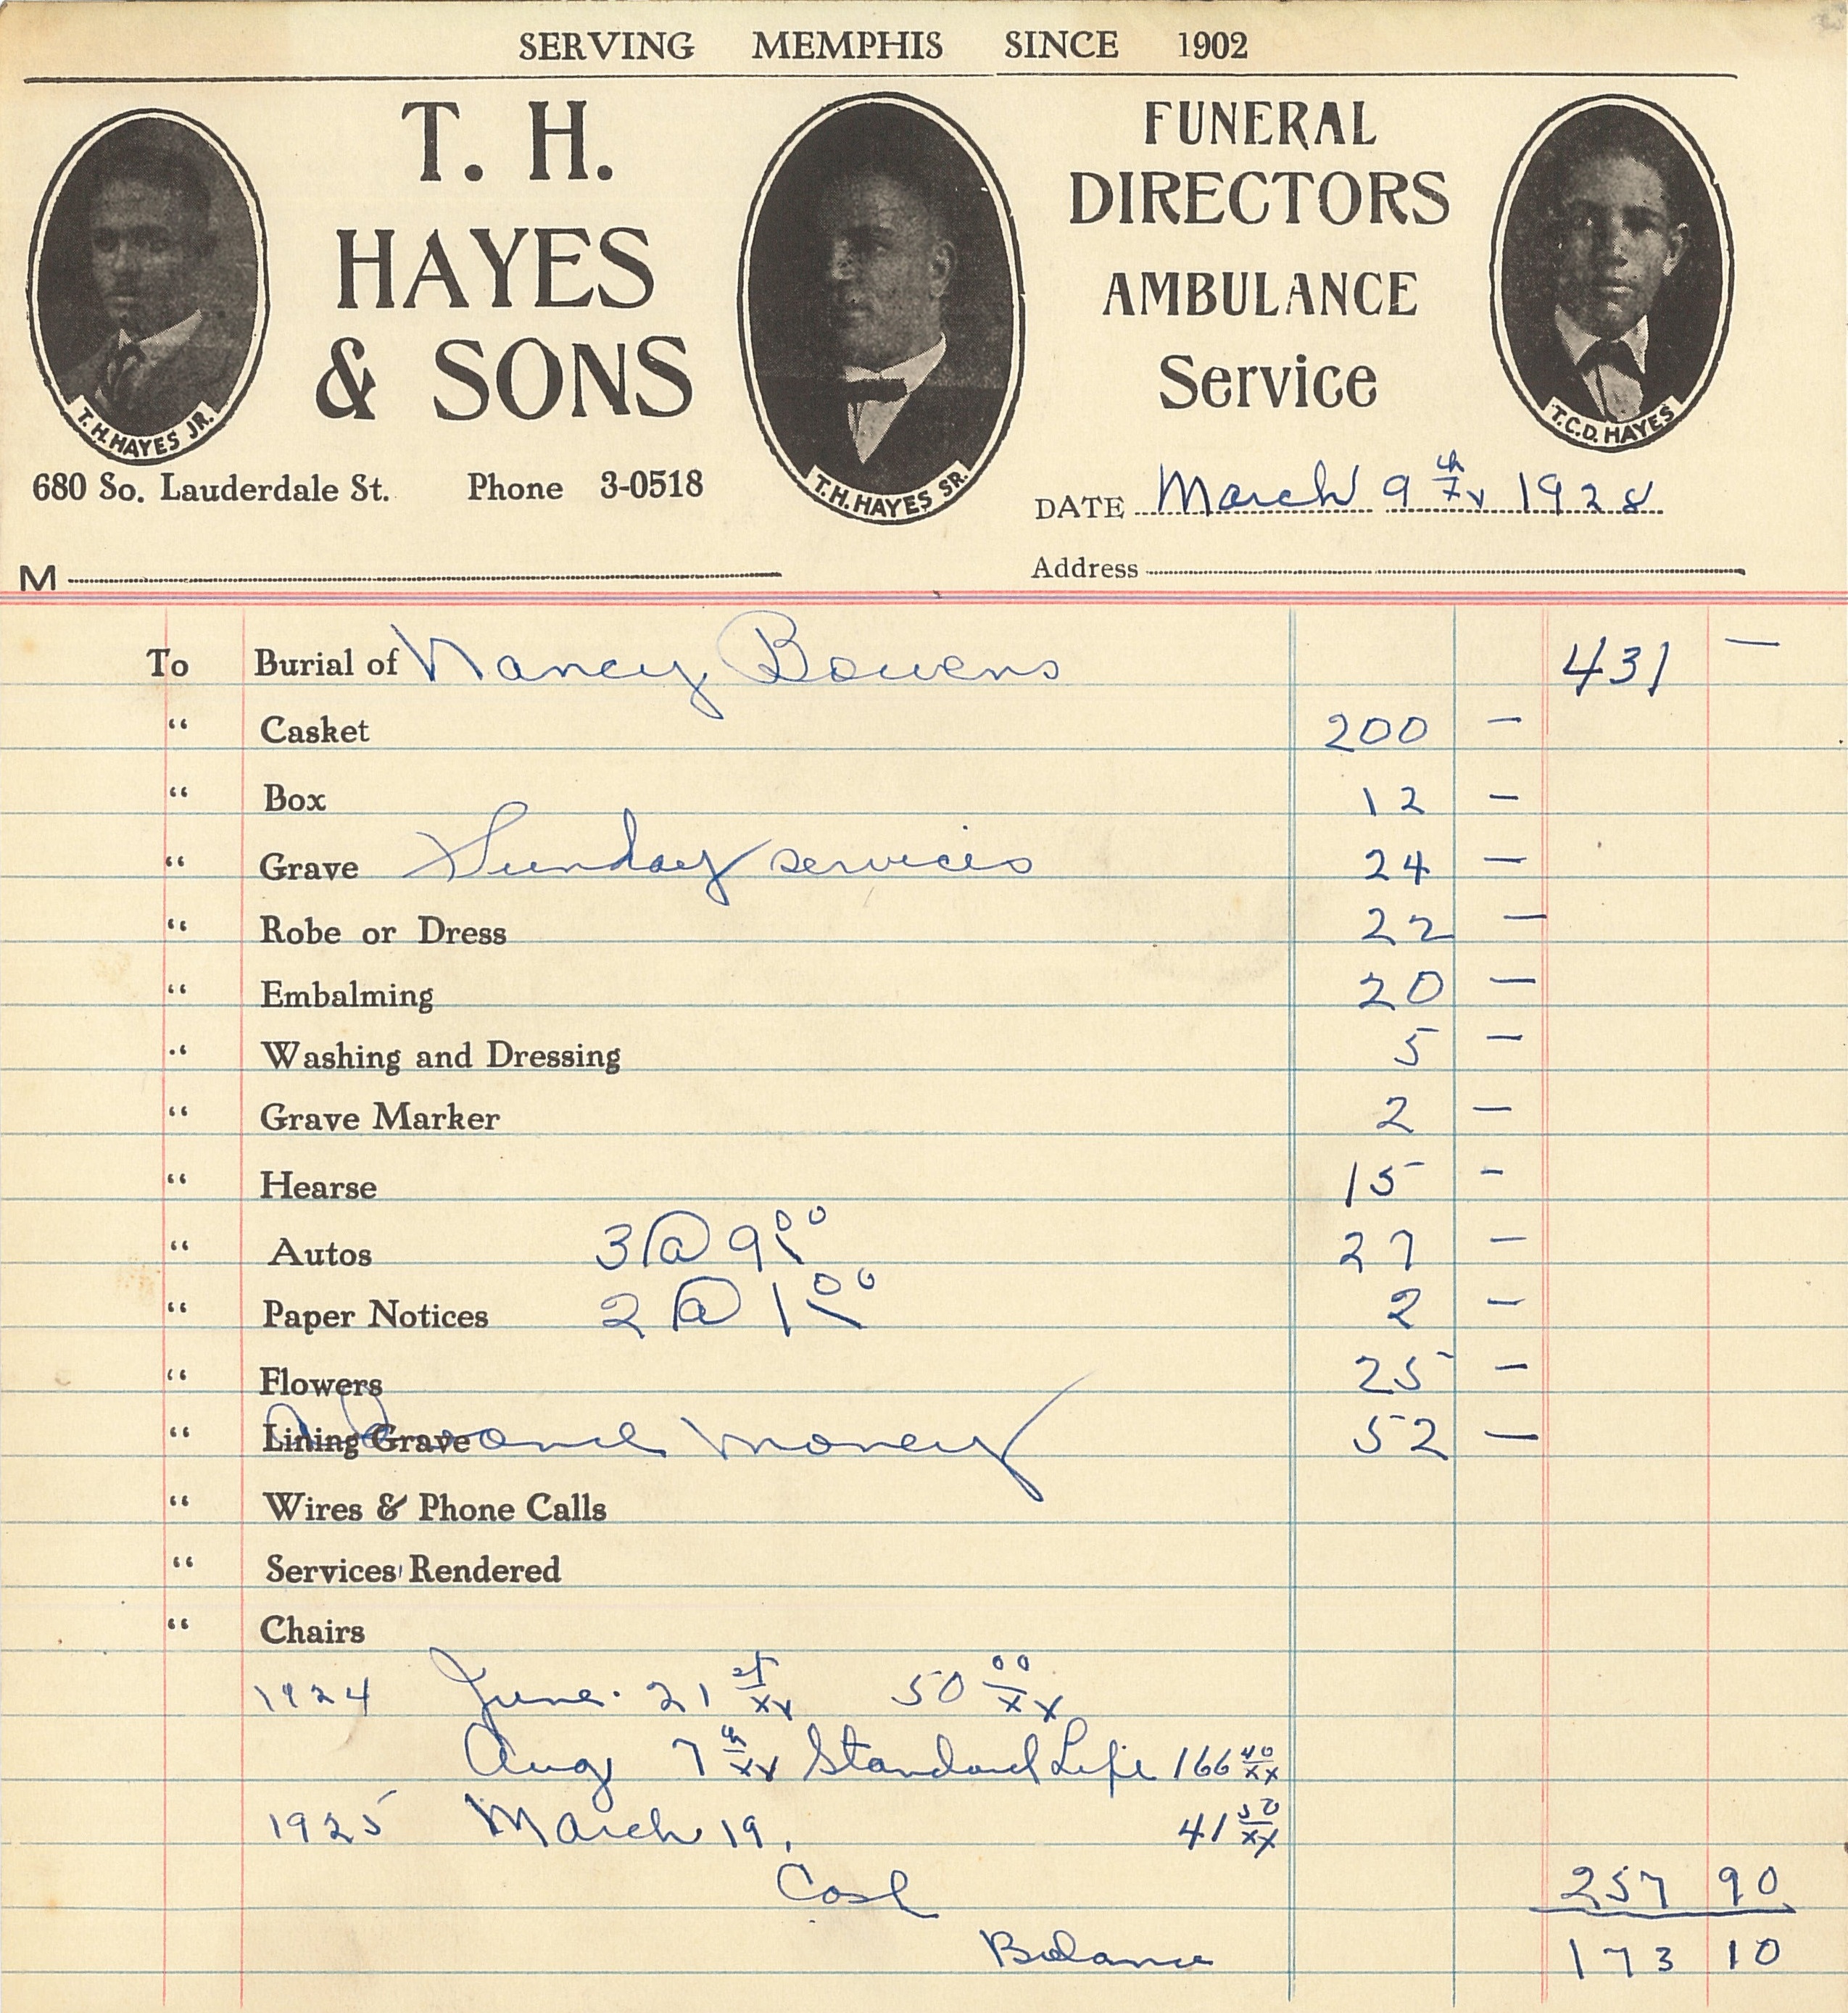 SERVING MEMPHIS SINCE 1902
T. H.
HAYES
& SONS
FUNERAL
DIRECTORS
AMBULANCE
Service
T. H. HAYES JR.
T. H. HAYES SR.
T. C. D. HAYES
680 So. Lauderdale St. Phone 3-0518
DATE March 9th 1928
M
Address
To Burial of Nancy Bowens 431 —
“ Casket 200 —
“ Box 12 —
“ Grave Sunday services 24 —
“ Robe or Dress 22 —
“ Embalming 20 —
“ Washing and Dressing 5 —
“ Grave Marker 2 —
“ Hearse 15 —
“ Autos 3 @ 9 00 27 —
“ Paper Notices 2 @ 1 00 2 —
“ Flowers 25 —
“ Lining Grave money 52 —
“ Wires & Phone Calls
“ Services Rendered
“ Chairs
1924 June 21st/xx 50 00/xx
Aug 7th/xx Standard Life 166 40/xx
1925 March 19. 41 50/xx
Cash 257 90
Balance 173 10